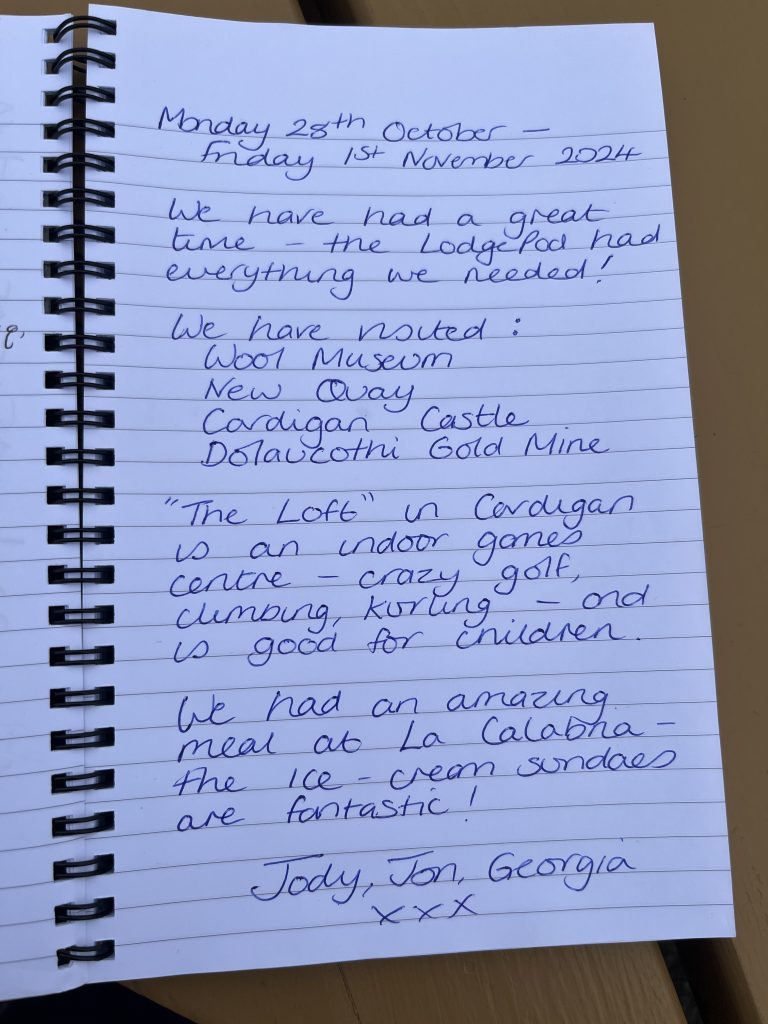 Monday 28th October –
Friday 1st November 2024
We have had a great
time – the LodgePod had
everything we needed!
We have visited :
Wool Museum
New Quay
Cardigan Castle
Dolaucothi Gold Mine
"The Loft" in Cardigan
is an indoor games
centre – crazy golf,
climbing, kurling – and
is good for children.
We had an amazing
meal at La Calabria –
the ice-cream sundaes
are fantastic!
Jody, Jon, Georgia
xxx